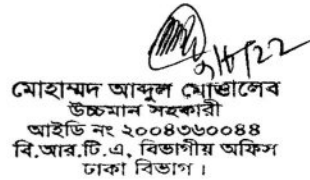 ৯/৮/22
মোহাম্মদ আব্দুল মোত্তালেব
উচ্চমান সহকারী
আইডি নং ২০০৪৩৬০০৪৪
বি.আর.টি.এ, বিভাগীয় অফিস
ঢাকা বিভাগ।